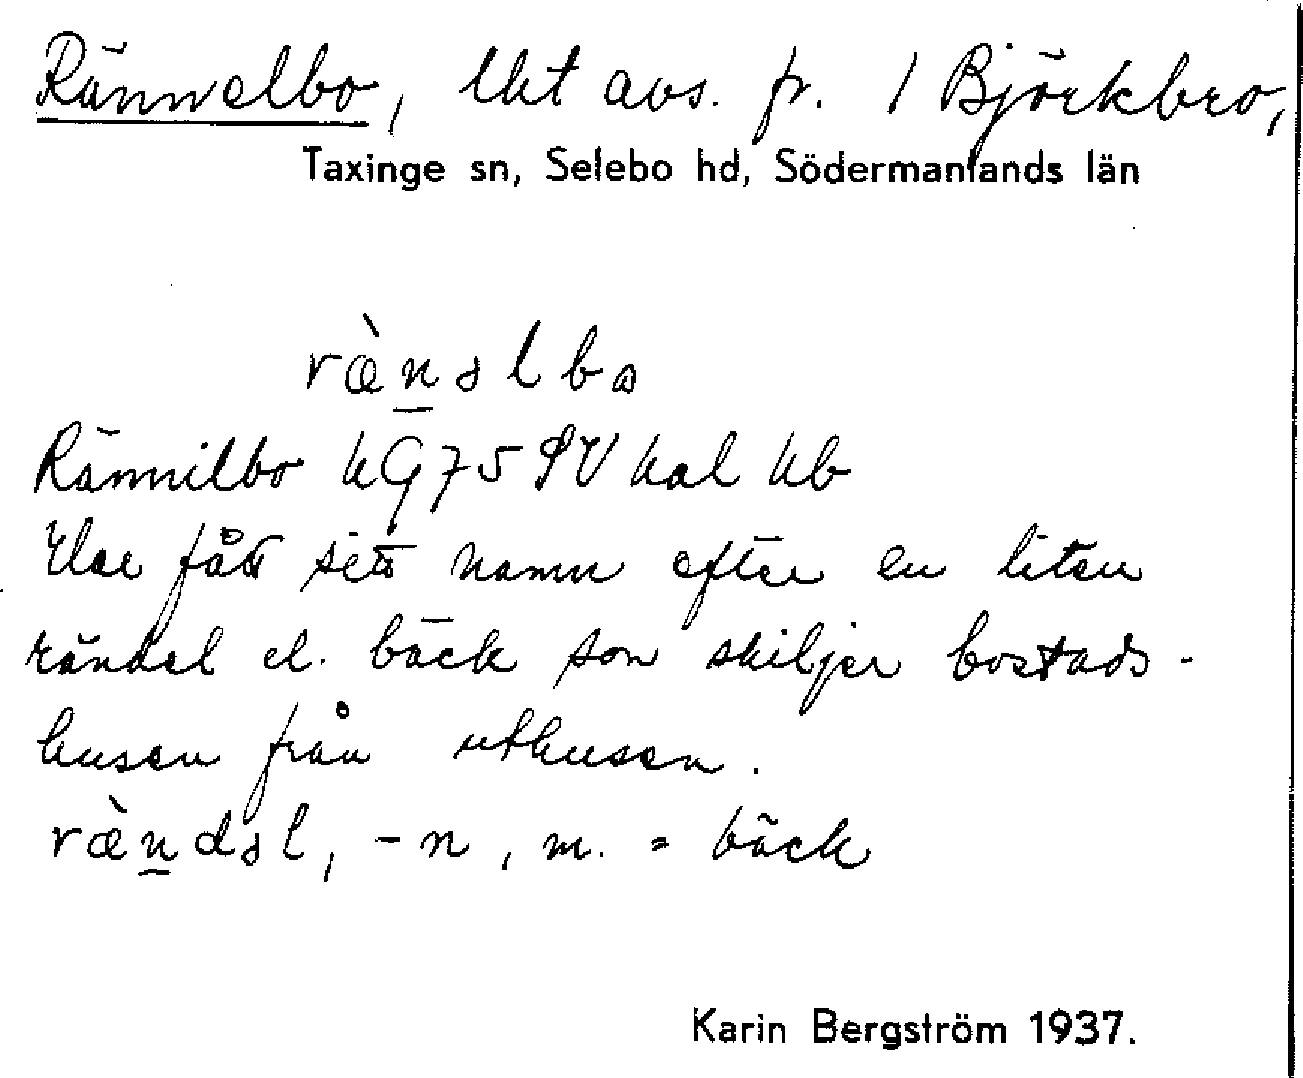 Rännelbo, lht avs. fr. 1 Björkbro,
Taxinge sn, Selebo hd, Södermanlands län
ræ̀n̲əlbω
Rännilbo hG75SV hal hb
fått sett namn efter en liten
rändel el. bäck som skiljer bostads-
husen från uthusen.
ræ̀n̲dəl, -n, m. = bäck
Karin Bergström 1937.